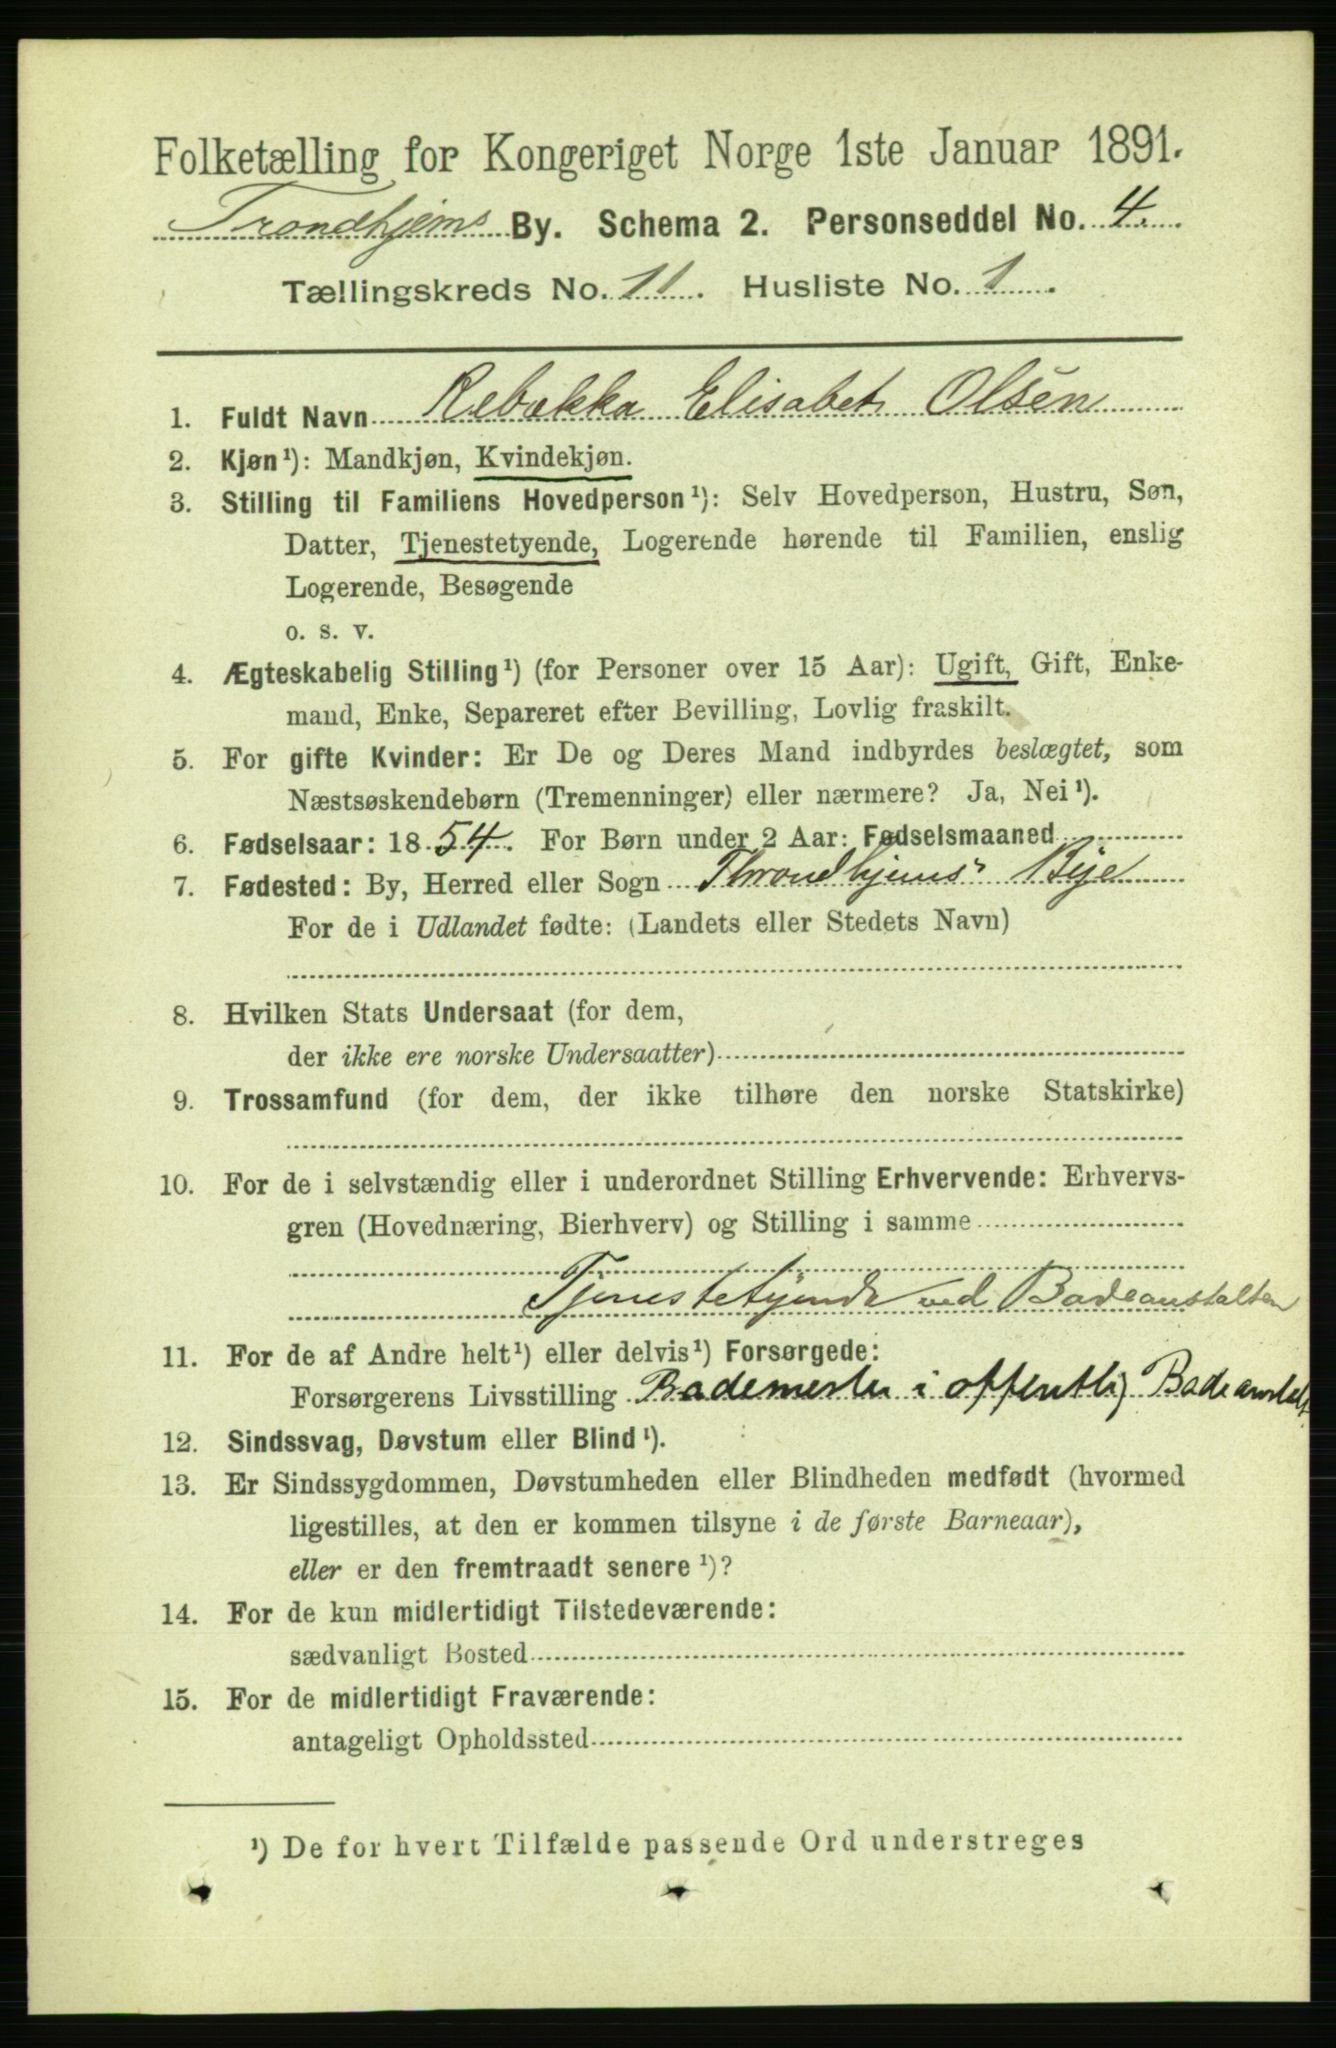 Folketælling for Kongeriget Norge 1ste Januar 1891.
Trondhjems By. Schema 2. Personseddel No. 4.
Tællingskreds No. 11. Husliste No. 1.
1. Fuldt Navn Rebekka Elisabet Olsen
2. Kjøn¹): Mandkjøn, Kvindekjøn.
3. Stilling til Familiens Hovedperson¹): Selv Hovedperson, Hustru, Søn,
Datter, Tjenestetyende, Logerende hørende til Familien, enslig
Logerende, Besøgende
o. s. v.
4. Ægteskabelig Stilling¹) (for Personer over 15 Aar): Ugift, Gift, Enke-
mand, Enke, Separeret efter Bevilling, Lovlig fraskilt.
5. For gifte Kvinder: Er De og Deres Mand indbyrdes beslægtet, som
Næstsøskendebørn (Tremenninger) eller nærmere? Ja, Nei¹).
6. Fødselsaar: 1854. For Børn under 2 Aar: Fødselsmaaned
7. Fødested: By, Herred eller Sogn Throndhjems Bye
For de i Udlandet fødte: (Landets eller Stedets Navn)
8. Hvilken Stats Undersaat (for dem,
der ikke ere norske Undersaatter)
9. Trossamfund (for dem, der ikke tilhøre den norske Statskirke)
10. For de i selvstændig eller i underordnet Stilling Erhvervende: Erhvervs-
gren (Hovednæring, Bierhverv) og Stilling i samme
Tjenestetyende ved Badeanstalten
11. For de af Andre helt¹) eller delvis¹) Forsørgede:
Forsørgerens Livsstilling Bademester i offentlig Badeanstalt
12. Sindssvag, Døvstum eller Blind¹).
13. Er Sindssygdommen, Døvstumheden eller Blindheden medfødt (hvormed
ligestilles, at den er kommen tilsyne i de første Barneaar),
eller er den fremtraadt senere¹)?
14. For de kun midlertidigt Tilstedeværende:
sædvanligt Bosted
15. For de midlertidigt Fraværende:
antageligt Opholdssted
¹) De for hvert Tilfælde passende Ord understreges